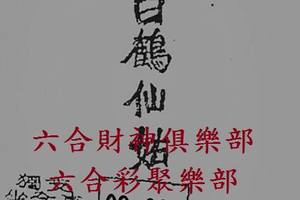 白鶴仙姑
六合財神俱樂部
六合彩聚樂部
獨